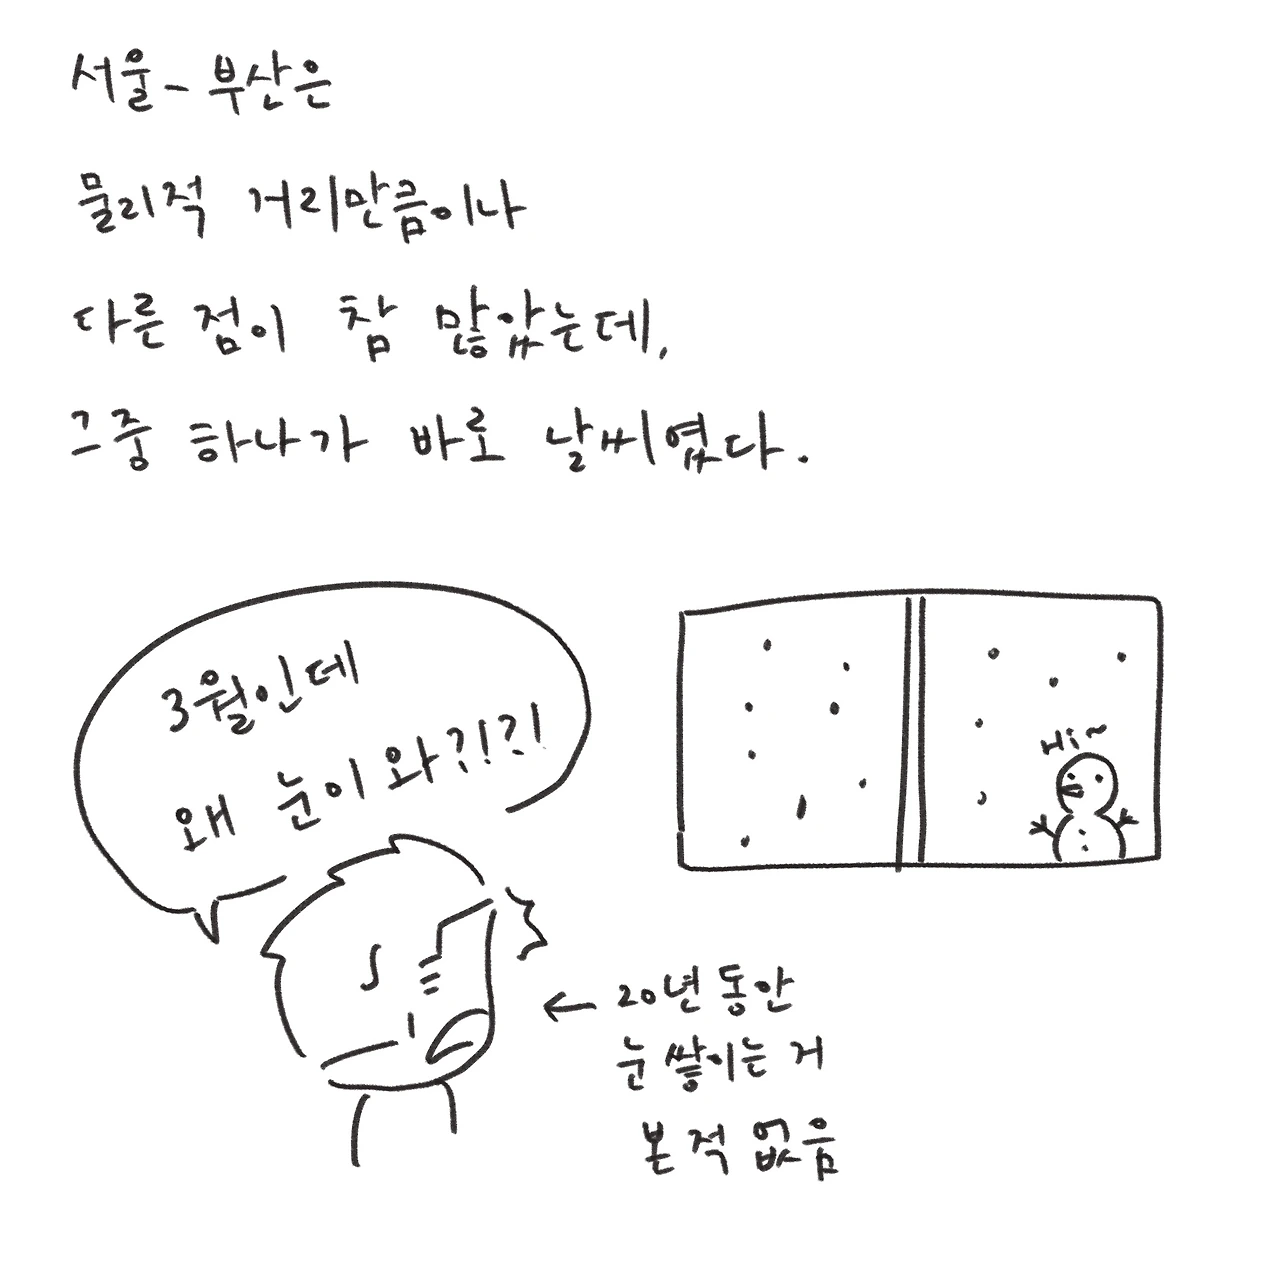 서울-부산은
물리적 거리만큼이나
다른 점이 참 많았는데,
그중 하나가 바로 날씨였다.
3월인데
왜 눈이 와?!?!
Hi~
← 20년 동안
눈 쌓이는 거
본 적 없음